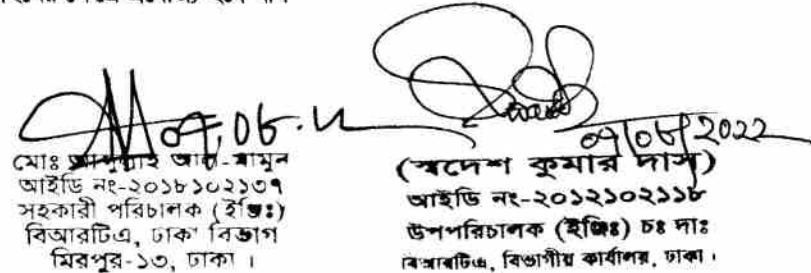 ০৭.০৮.২২
মোঃ আল-মামুন
আইডি নং-২০১৮১০২১৩৭
সহকারী পরিচালক (ইঞ্জিঃ)
বিআরটিএ, ঢাকা বিভাগ
মিরপুর-১৩, ঢাকা ।
০৭/০৮/2022
(স্বদেশ কুমার দাস)
আইডি নং-২০১২১০২১১৮
উপপরিচালক (ইঞ্জিঃ) চঃ দাঃ
বিআরটিএ, বিভাগীয় কার্যালয়, ঢাকা ।